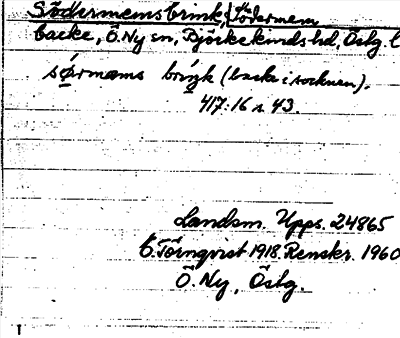 Södermemsbrink, Södermem
backe, Ö. Ny sn, Björkekinds hd, Östg. l
sørmems briŋk (backe i socknen).
417:16 s. 43.
Landsm. Upps. 24865
E. Törnqvist 1918. Renskr. 1960
Ö. Ny, Östg.